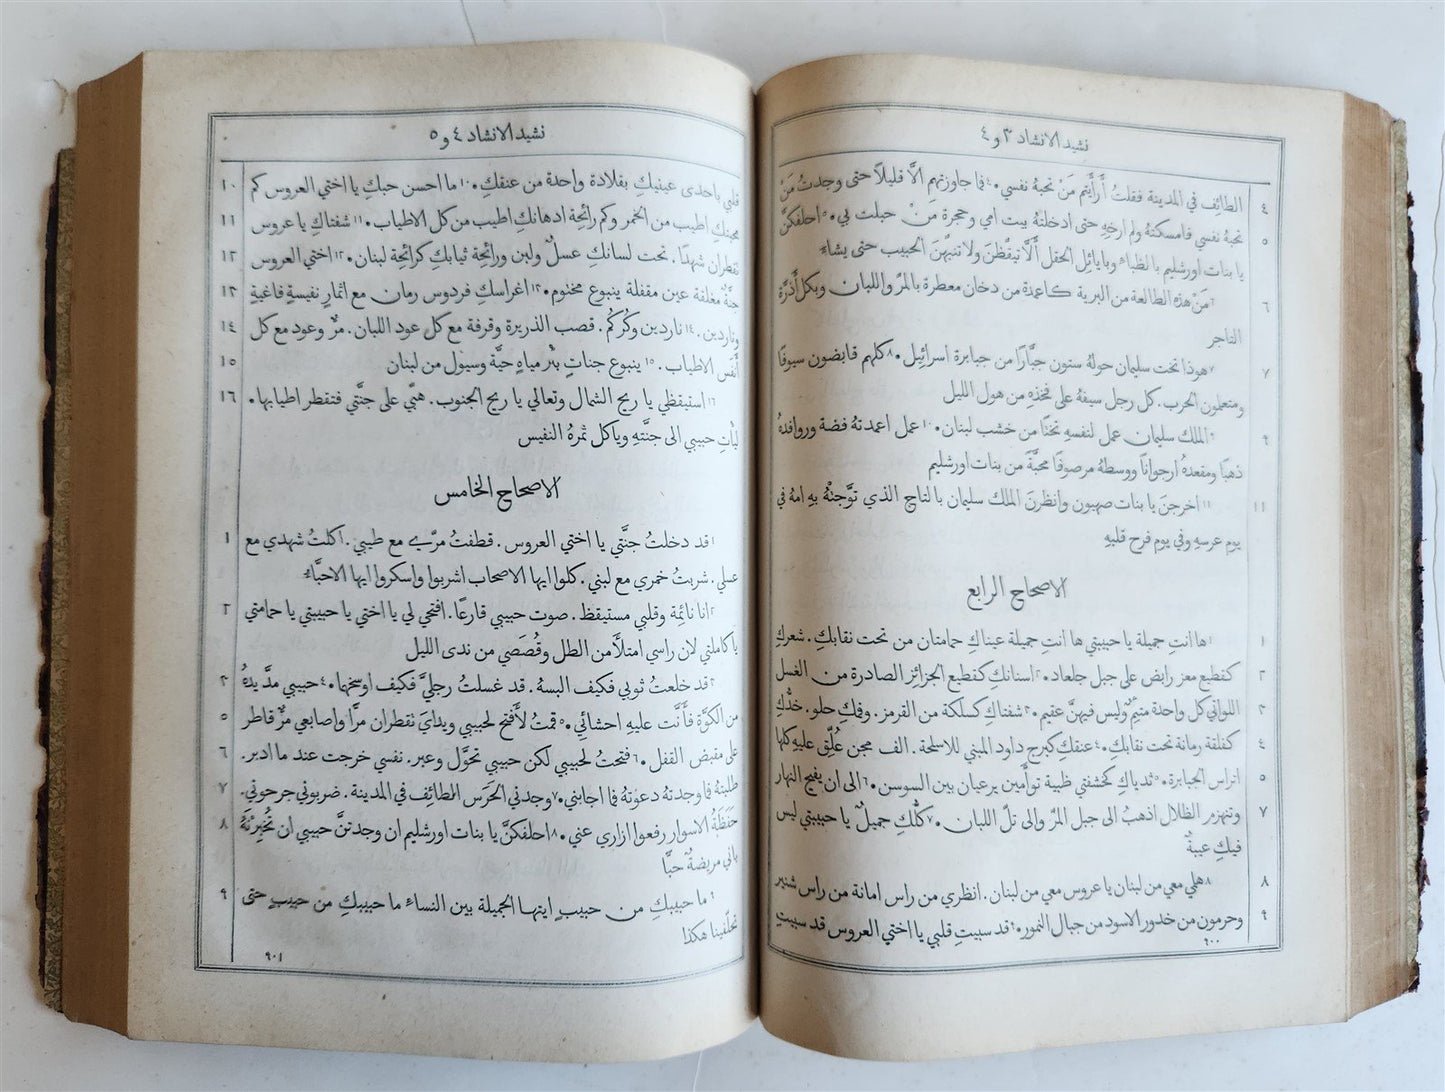 نشيد الانشاد ٣ و ٤
٤ الطائِف في المدينة فقلتُ أَرأَيتم مَنْ تحبهُ نفسي.٤فما جاوزتهم الَّا قليلًا حتى وجدتُ مَنْ
٥ تحبهُ نفسي فامسكتهُ ولم ارخهِ حتى ادخلتهُ بيت امي وحجرة مَنْ حبلت بي.٥احلفكنَّ
يا بنات اورشليم بالظباءِ وبايائِل الحقل أَلَّا تيقظنَ ولا تنبهنَ الحبيب حتى يشاء
٦ ٦مَنْ هذه الطالعة من البرية كاعمدة من دخان معطرة بالمرّ واللبان وبكل أَذرَّة
التاجر
٧ ٧هوذا تخت سليمان حولهُ ستون جبَّارًا من جبابرة اسرائيل.٨كلهم قابضون سيوفًا
ومتعلمون الحرب. كل رجل سيفهُ على فخذهِ من هول الليل
٩ ٩الملك سليمان عمل لنفسهِ تختًا من خشب لبنان.١٠عمل اعمدتهُ فضة وروافدهُ
ذهبًا ومقعدهُ ارجوانًا ووسطهُ مرصوفًا محبَّةً من بنات اورشليم
١١ ١١اخرجنَ يا بنات صهيون وانظرنَ الملك سليمان بالتاج الذي توَّجتْهُ بهِ امهُ في
يوم عرسهِ وفي يوم فرح قلبهِ
الاصحاح الرابع
١ ١ها انتِ جميلة يا حبيبتي ها انتِ جميلة عيناكِ حمامتان من تحت نقابكِ. شعركِ
٢ كقطيع معز رابض على جبل جلعاد.٢اسنانكِ كقطيع الجزائز الصادرة من الغسل
٣ اللواتي كل واحدة متيمٌ وليس فيهنَّ عقيم.٣شفتاكِ كسلكة من القرمز. وفمكِ حلو. خدُّكِ
٤ كفلقة رمانة تحت نقابكِ.٤عنقكِ كبرج داود المبني للاسلحة. الف مجن عُلّق عليهِ كلها
٥ اتراس الجبابرة.٥ثدياكِ كخشفتي ظبية توأَمين يرعيان بين السوسن.٦الى ان يفيح النهار
٧ وتنهزم الظلال اذهبُ الى جبل المرّ والى تلّ اللبان.٧كلُّكِ جميلٌ يا حبيبتي ليس
فيكِ عيبةٌ
٨ ٨هلمي معي من لبنان يا عروس معي من لبنان. انظري من راس امانة من راس شنير
٩ وحرمون من خدور الاسود من جبال النمور.٩قد سبيتِ قلبي يا اختي العروس قد سبيتِ
٩٠٠
نشيد الانشاد ٤ و ٥
١٠ قلبي باحدى عينيكِ بقلادة واحدة من عنقكِ.١٠ما احسن حبكِ يا اختي العروس كم
١١ محبتكِ اطيب من الخمر وكم رائحة ادهانكِ اطيب من كل الاطياب.١١شفتاكِ يا عروس
١٢ تقطران شهدًا. تحت لسانكِ عسلٌ ولبن ورائحة ثيابكِ كرائحة لبنان.١٢اختي العروس
١٣ جنَّة مغلقة عين مقفلة ينبوع مختوم.١٣اغراسكِ فردوس رمان مع اثمارٍ نفيسةٍ فاغيةٍ
١٤ وناردين.١٤ناردين وكُركُم. قصب الذريرة وقرفة مع كل عود اللبان. مرٌّ وعود مع كل
١٥ أَنفَس الاطياب.١٥ينبوع جناتٍ بئر مياهٍ حيَّة وسيول من لبنان
١٦ ١٦استيقظي يا ريح الشمال وتعالي يا ريح الجنوب. هبّي على جنَّتي فتقطر اطيابها.
ليأْتِ حبيبي الى جنَّتهِ وياكل ثمرهُ النفيس
الاصحاح الخامس
١ ١قد دخلتُ جنَّتي يا اختي العروس. قطفتُ مرّي مع طيبي. اكلتُ شهدي مع
عسلي. شربتُ خمري مع لبني. كلوا ايها الاصحاب اشربوا واسكروا ايها الاحبَّاءُ
٢ ٢انا نائمة وقلبي مستيقظ. صوت حبيبي قارعًا. افتحي لي يا اختي يا حبيبتي يا حمامتي
يا كاملتي لان راسي امتلأَ من الطل وقُصَصي من ندى الليل
٣ ٣قد خلعتُ ثوبي فكيف البسهُ. قد غسلتُ رجليَّ فكيف اوسخهما.٤حبيبي مدَّ يدهُ
٥ من الكوَّة فأَنَّت عليهِ احشائي.٥قمتُ لأَفتح لحبيبي ويدايَ تقطران مرًّا واصابعي مرٌّ قاطر
٦ على مقبض القفل.٦فتحتُ لحبيبي لكن حبيبي تحوَّل وعبر. نفسي خرجت عند ما ادبر.
٧ طلبتهُ فما وجدتهُ دعوتهُ فما اجابني.٧وجدني الحَرَس الطائِف في المدينة. ضربوني جرحوني.
٨ حَفَظَةُ الاسوار رفعوا ازاري عني.٨احلفكنَّ يا بنات اورشليم ان وجدتنَّ حبيبي ان تخبِرْنهُ
باني مريضةٌ حبًّا
٩ ٩ما حبيبكِ من حبيبٍ ايتها الجميلة بين النساءِ ما حبيبكِ من حبيبٍ حتى
تحلّفينا هكذا
٩٠١